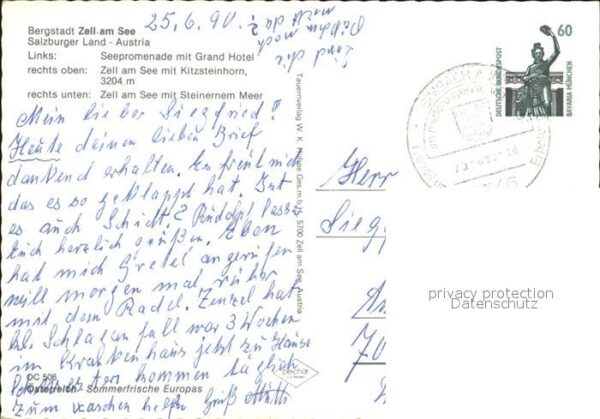 Bergstadt Zell am See
Salzburger Land - Austria
Links: Seepromenade mit Grand Hotel
rechts oben: Zell am See mit Kitzsteinhorn,
3204 m
rechts unten: Zell am See mit Steinernem Meer
25.6.90.
Sind die
noch
nicht da?
60
DEUTSCHE BUNDESPOST
BAVARIA MÜNCHEN
Mein lieber Siegfried!!
Heute deinen lieben Brief
dankend erhalten. Es freut mich
das es so geklappt hat. Gut
es auch Schidt? Rudolf lasse
Euch herzlich grüßen. Eben
hat mich Gretel angerufen
will morgen mal rüber
mit dem Radel. Zenzel hat
Schlaganfall war 3 Wochen
im Krankenhaus jetzt zu Hause
kommen täglich
zum waschen helfen Gruß Mutti
Herr
Sieg
An
70
Tauernverlag W. K. Huber Ges.m.b.H. 5700 Zell am See, Austria
DC 506
Österreich - Sommerfrische Europas
privacy protection
Datenschutz